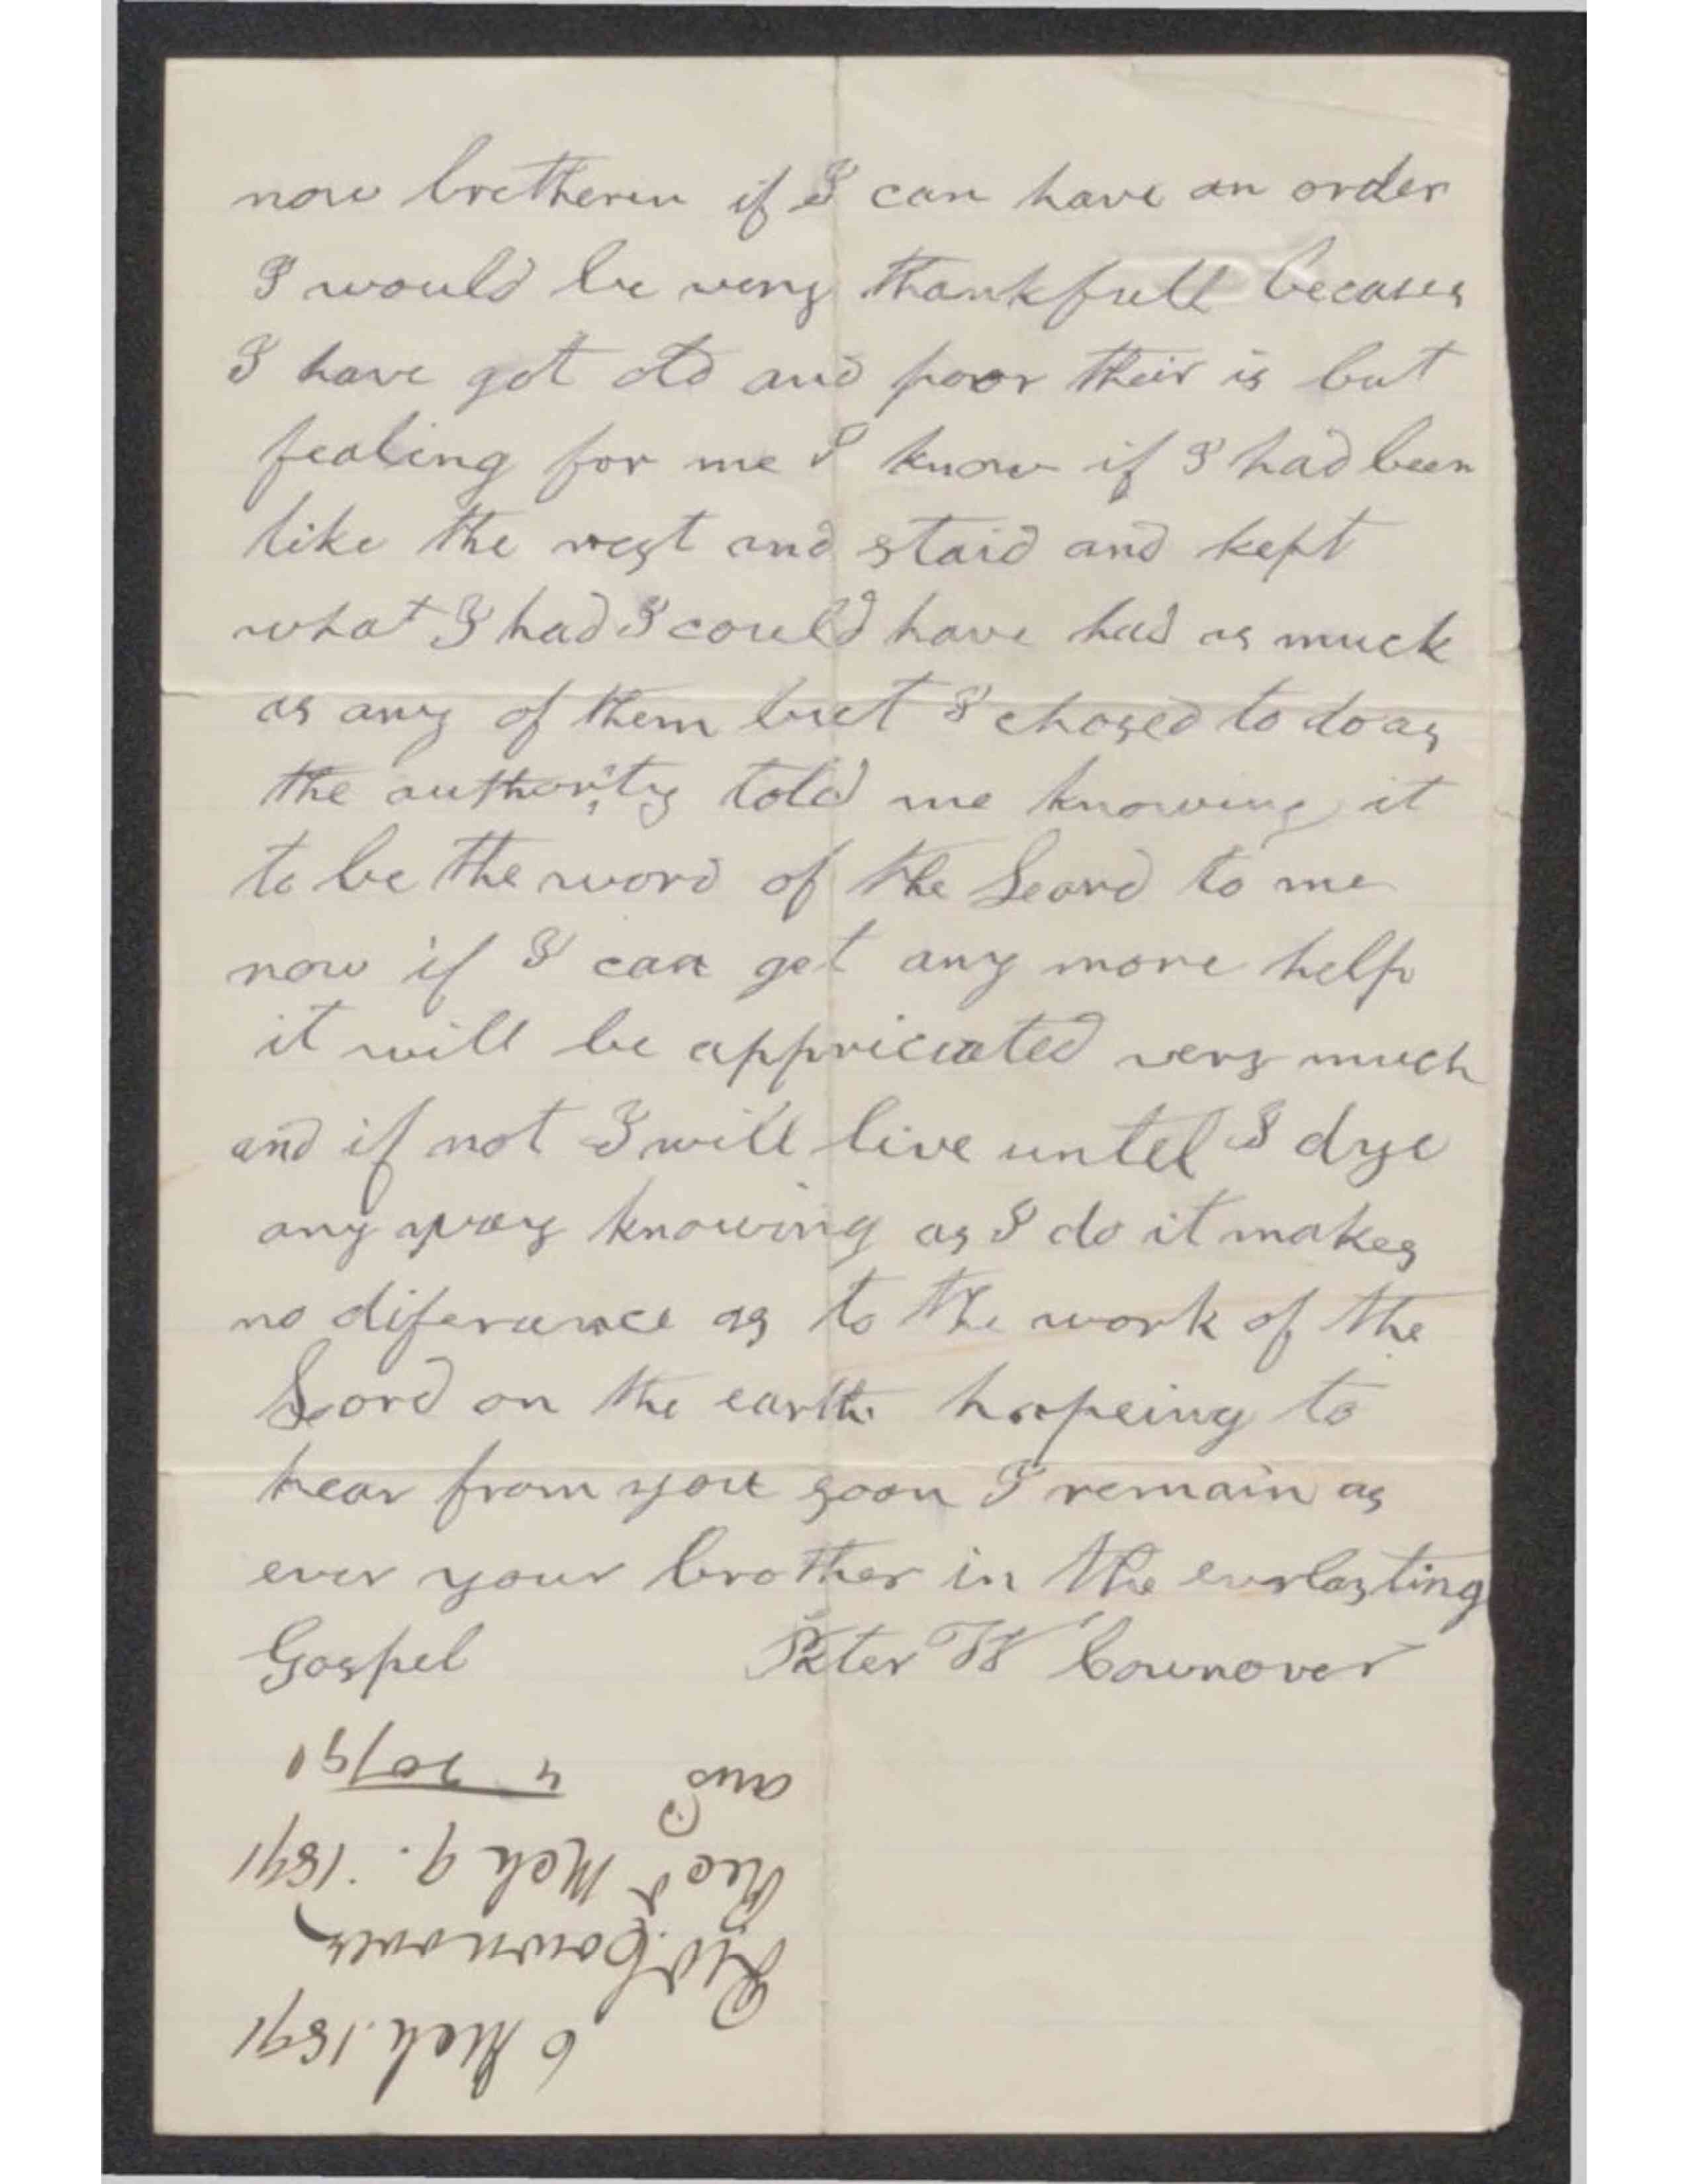 now bretheren if I can have an order
I would be very thankfull becaues
I have got old and poor their is but
fealing for me I know if I had been
like the rest and staid and kept
what I had I could have had as much
as any of them but I chosed to do as
the authority told me knowing it
to be the word of the Leord to me
now if I can get any more help
it will be appriciated very much
and if not I will live untel I dye
any way knowing as I do it makes
no diferance as to the work of the
Leord on the earth hopeing to
hear from you soon I remain as
ever your brother in the everlasting
Gospel Peter W Cownover
6 Mch. 1891
P. W. Cownover
Recd Mch 9. 1891
ansd